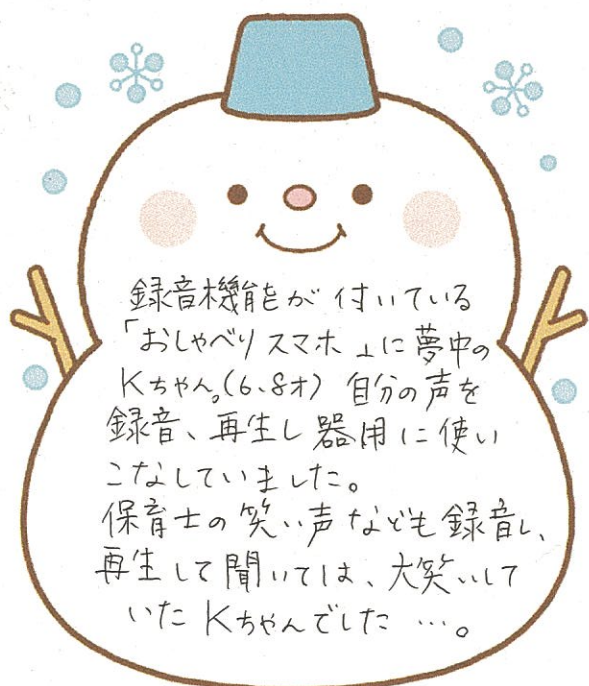 録音機能が付いている
「おしゃべりスマホ」に夢中の
Kちゃん。(6、8才) 自分の声を
録音、再生し器用に使い
こなしていました。
保育士の笑い声なども録音し、
再生して聞いては、大笑いして
いたKちゃんでした…。